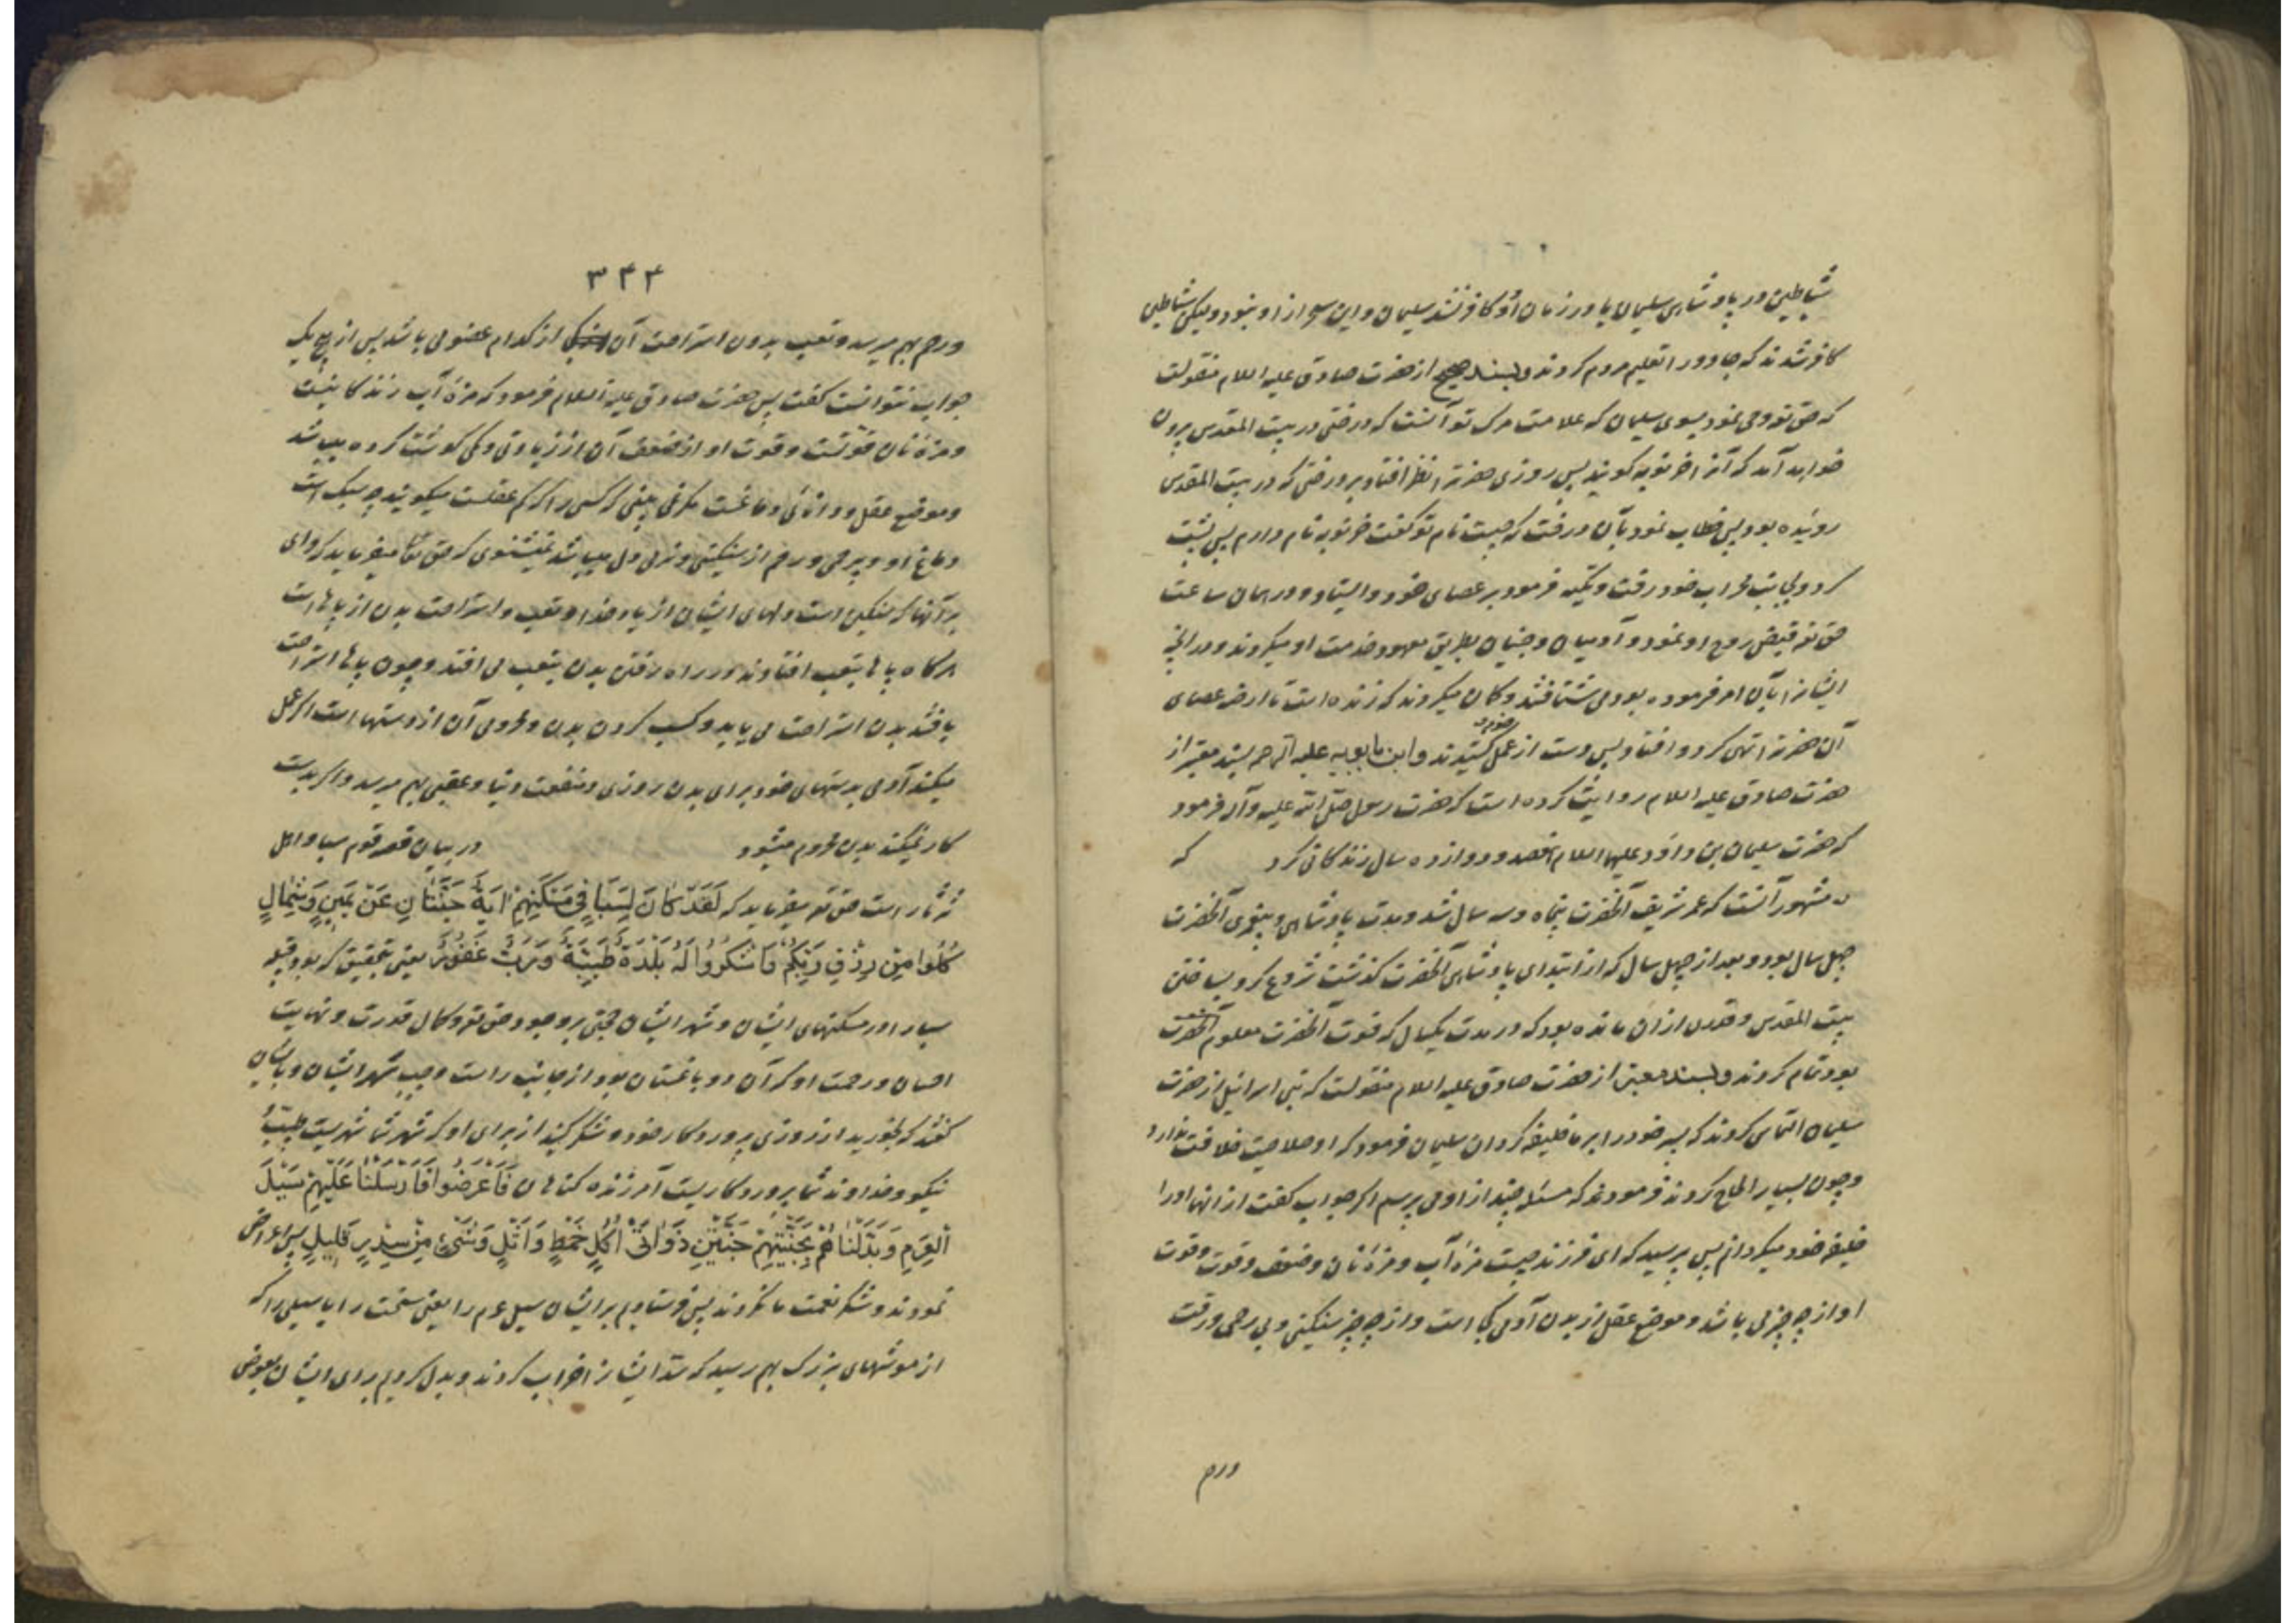 شیاطین در پادشاهی سلیمان یا در زمان او و کافر نشد سلیمان و این سحر از او نبود و لیکن شیاطین
کافر شدند که جادو را تعلیم مردم کردند و بسند صحیح از حضرت صادق علیه السلام منقولست
که حق تع وحی نمود بسوی سلیمان که علامت مرک تو آنست که درختی در بیت المقدس بیرون
خواهد آمد که آنرا خرنوبه کویند پس روزی حضرترا نظر افتاد بر درختی که در بیت المقدس
روئیده بود پس خطاب نمود بآن درخت که چیست نام تو کفت خرنوبه نام دارم پس پشت
کرد و بجانب محراب خود رفت و تکیه فرمود بر عصای خود و ایستاد و در همان ساعت
حق تع قبض روح او نمود و آدمیان و جنیان بطریق معهود خدمت او میکردند و در آنچه
ایشانرا بآن امر فرموده بود می شتافتند و کمان میکردند که زنده است تا ارضه عصای
آن حضرترا تهی کرد و افتاد پس دست از عمل خود کشیدند و ابن بابویه علیه الرحمه بسند معتبر از
حضرت صادق علیه السلام روایت کرده است که حضرت رسول صلی الله علیه وآله فرمود
که حضرت سلیمان بن داود علیهما السلام هفصد و دوازده سال زندکانی کرد که
مشهور آنست که عمر شریف آنحضرت پنجاه و سه سال شد و مدت پادشاهی و پیغمبری آنحضرت
چهل سال بود و بعد از چهل سال که از ابتدای پادشاهی آنحضرت کذشت شروع کرد بساختن
بیت المقدس و قدری از آن مانده بود که در مدت یکسال که فوت آنحضرت معلوم آنحضرت
بود تمام کردند و بسند معتبر از حضرت صادق علیه السلام منقولست که بنی اسرائیل از حضرت
سلیمان التماس کردند که پسر خود را بر ما خلیفه کردان سلیمان فرمود که او صلاحیت خلافت ندارد
و چون بسیار الحاح کردند فرمودند که مسئله چند از او می پرسم اکر جواب کفت از آنها او را
خلیفه خود میکردانم پس پرسید که ای فرزند چیست مزهٔ آب و مزهٔ نان و ضعف و قوت و قوت
او از چه چیز می باشد و موضع عقل از بدن آدمی کجا است و از چه چیز سنکینی و بی رحمی و رقت
ورحم
۳۴۴
و رحم بهم میرسد و تعب بدون استراحت آن از کدام عضو می باشد پس از هیچ یک
جواب نتوانست کفت پس حضرت صادق علیه السلام فرمود که مزهٔ آب زندکانیست
و مزهٔ نان قوتست و قوت او از ضعف آن از زیادتی و کمی کوشت کرده میباشد
و موضع عقل و دانائی دماغست مکر نمی بینی که کسی را که کم عقلست میکویند چه سبک است
دماغ او و بیرحمی و رحم از سنکینی و نرمی دل میباشد نمیشنوی که حق تعالی میفرماید که وای
بر آنها که سنکین است دلهای ایشان از یاد خدا و تعب و استراحت بدن از پاها است
هر کاه پاها بتعب افتادند در راه رفتن بدن بتعب می افتد و چون پاها استراحت
یافتند بدن استراحت می یابد و کسب کردن بدن و محرومی آن از دستها است اکر عمل
میکند آدمی بدستهای خود برای بدن روزی و منفعت دنیا و عقبی بهم میرسد و اکر بدست
کار نمیکند بدن محروم میشود در بیان قصه قوم سبا و اهل
ثرثار است حق تع میفرماید که لَقَدْ كَانَ لِسَبَإٍ فِي مَسْكَنِهِمْ آيَةٌ جَنَّتَانِ عَنْ يَمِينٍ وَشِمَالٍ
كُلُوا مِنْ رِزْقِ رَبِّكُمْ وَاشْكُرُوا لَهُ بَلْدَةٌ طَيِّبَةٌ وَرَبٌّ غَفُورٌ یعنی بتحقیق که بود قبیله
سبا را در مسکنهای ایشان و شهر ایشان حجتی بر وجود حق تع و کمال قدرت و نهایت
احسان و رحمت او که آن دو باغستان بود از جانب راست و چپ شهر ایشان و بایشان
کفتند که بخورید از روزی پروردکار خود و شکر کنید از برای او که شهر شما شهریست طیب
نیکو و خداوند شما پروردکاریست آمرزنده کناهان فَأَعْرَضُوا فَأَرْسَلْنَا عَلَيْهِمْ سَيْلَ
الْعَرِمِ وَبَدَّلْنَاهُمْ بِجَنَّتَيْهِمْ جَنَّتَيْنِ ذَوَاتَيْ أُكُلٍ خَمْطٍ وَأَثْلٍ وَشَيْءٍ مِنْ سِدْرٍ قَلِيلٍ پس اعراض
نمودند و شکر نعمت ما نکردند پس فرستادیم بر ایشان سیل عرم را یعنی سخت را یا سیلی را که
از موشهای بزرک بهم رسید که سد ایشانرا خراب کردند و بدل کردیم برای ایشان بعوض